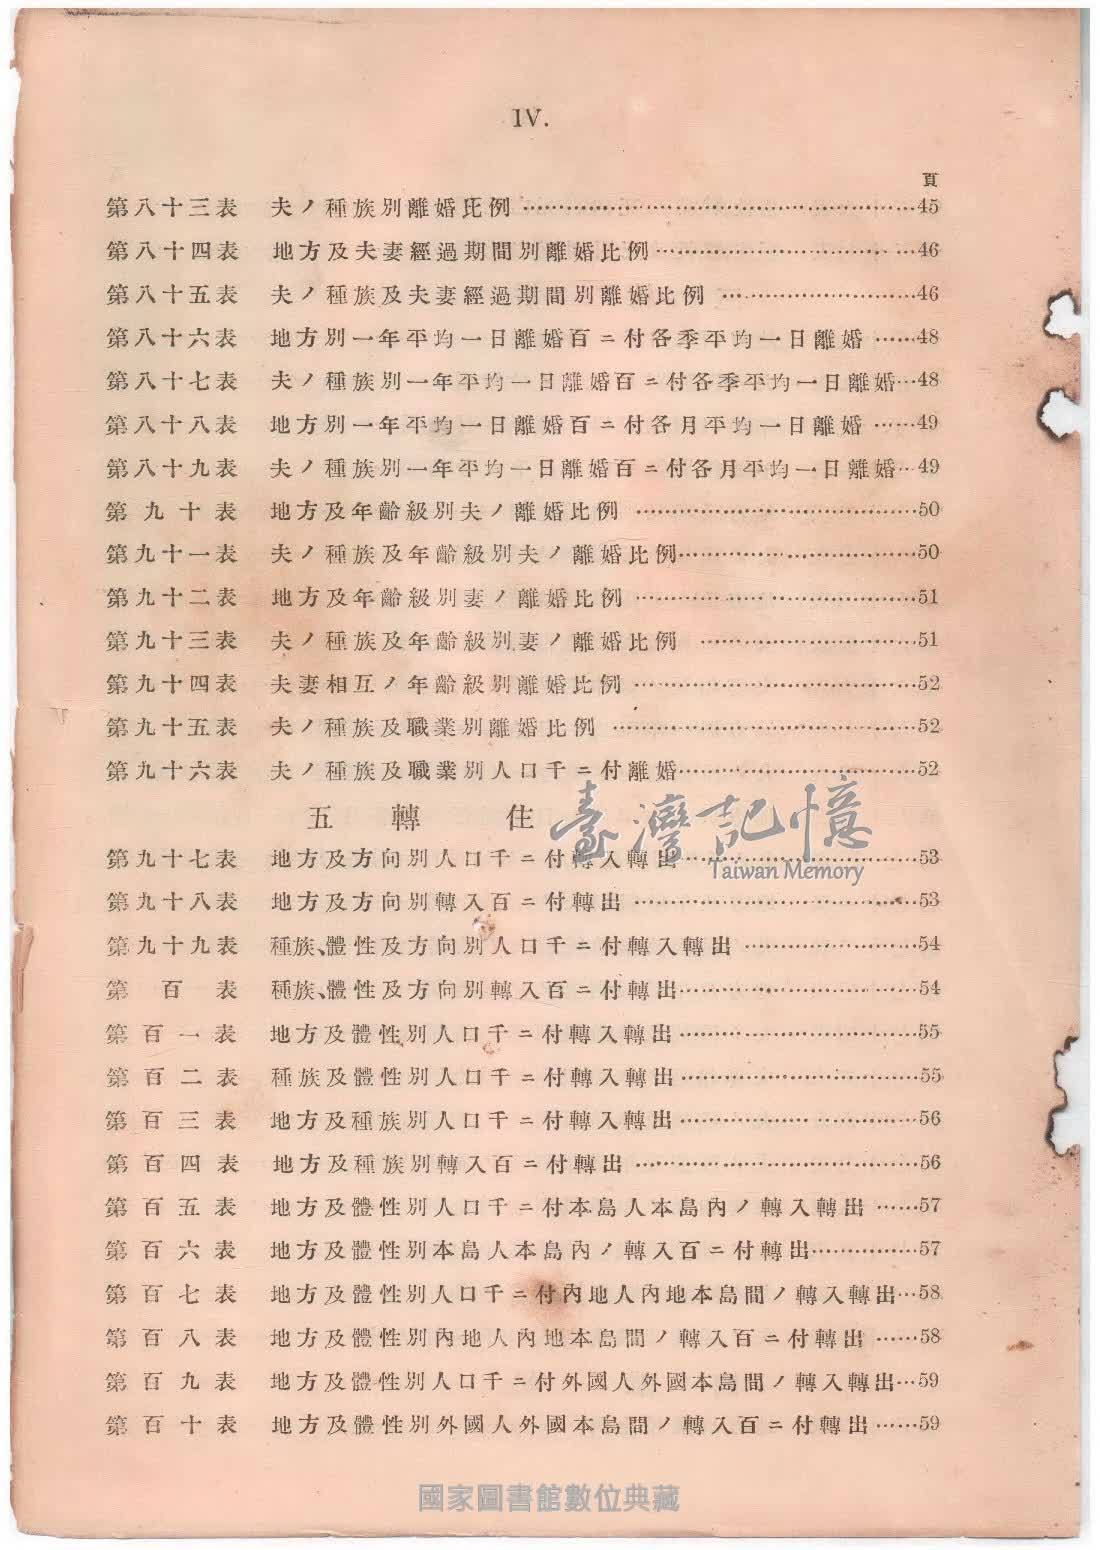 IV.
頁
第八十三表 夫ノ種族別離婚比例 ……45
第八十四表 地方及夫妻經過期間別離婚比例 ……46
第八十五表 夫ノ種族及夫妻經過期間別離婚比例 ……46
第八十六表 地方別一年平均一日離婚百ニ付各季平均一日離婚 ……48
第八十七表 夫ノ種族別一年平均一日離婚百ニ付各季平均一日離婚…48
第八十八表 地方別一年平均一日離婚百ニ付各月平均一日離婚 ……49
第八十九表 夫ノ種族別一年平均一日離婚百ニ付各月平均一日離婚…49
第九十表 地方及年齡級別夫ノ離婚比例 ……50
第九十一表 夫ノ種族及年齡級別夫ノ離婚比例……50
第九十二表 地方及年齡級別妻ノ離婚比例 ……51
第九十三表 夫ノ種族及年齡級別妻ノ離婚比例 ……51
第九十四表 夫妻相互ノ年齡級別離婚比例 ……52
第九十五表 夫ノ種族及職業別離婚比例 ……52
第九十六表 夫ノ種族及職業別人口千ニ付離婚……52
五 轉 住
臺灣記憶
Taiwan Memory
第九十七表 地方及方向別人口千ニ付轉入轉出……53
第九十八表 地方及方向別轉入百ニ付轉出 ……53
第九十九表 種族、體性及方向別人口千ニ付轉入轉出 ……54
第百表 種族、體性及方向別轉入百ニ付轉出……54
第百一表 地方及體性別人口千ニ付轉入轉出……55
第百二表 種族及體性別人口千ニ付轉入轉出……55
第百三表 地方及種族別人口千ニ付轉入轉出……56
第百四表 地方及種族別轉入百ニ付轉出 ……56
第百五表 地方及體性別人口千ニ付本島人本島內ノ轉入轉出 ……57
第百六表 地方及體性別本島人本島內ノ轉入百ニ付轉出……57
第百七表 地方及體性別人口千ニ付內地人內地本島間ノ轉入轉出…58
第百八表 地方及體性別內地人內地本島間ノ轉入百ニ付轉出 ……58
第百九表 地方及體性別人口千ニ付外國人外國本島間ノ轉入轉出…59
第百十表 地方及體性別外國人外國本島間ノ轉入百ニ付轉出……59
國家圖書館數位典藏